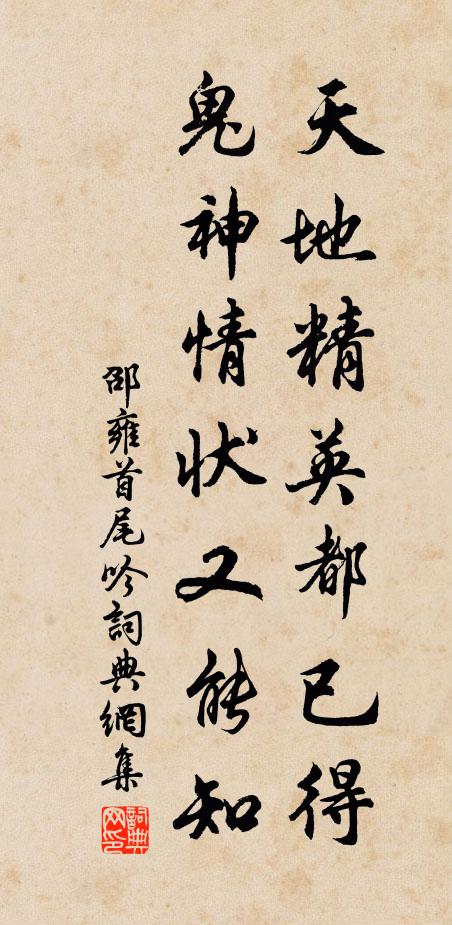 天地精英都已得
鬼神情状又能知
邵雍首尾吟詞典網集
詞典网印